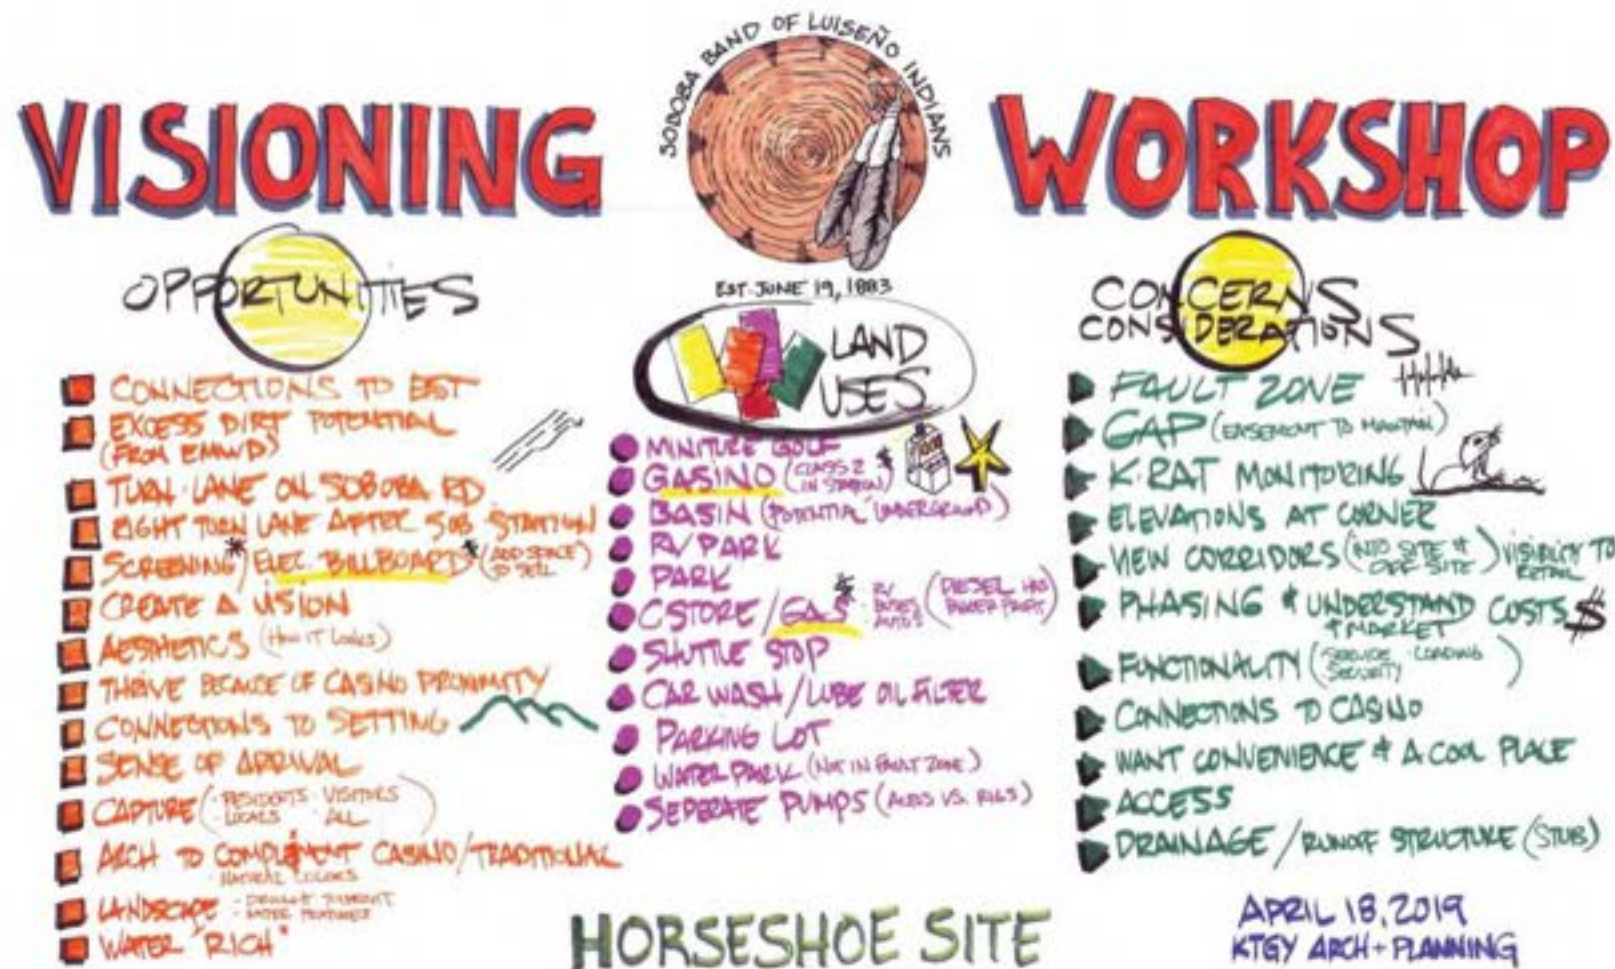 VISIONING
SOBOBA BAND OF LUISEÑO INDIANS
WORKSHOP
EST. JUNE 19, 1883
OPPORTUNITIES
CONNECTIONS TO EAST
EXCESS DIRT POTENTIAL
(FROM EMWD)
TURN LANE ON SOBOBA RD
RIGHT TURN LANE AFTER SUB STATION
SCREENING*/ELEC. BILLBOARD* (ADD SPACE TO SELL)
CREATE A VISION
AESTHETICS (HOW IT LOOKS)
THRIVE BECAUSE OF CASINO PROXIMITY
CONNECTIONS TO SETTING
SENSE OF ARRIVAL
CAPTURE (· RESIDENTS · VISITORS
· LOCALS · ALL)
ARCH TO COMPLIMENT CASINO/TRADITIONAL
· NATURAL COLORS
LANDSCAPE - DROUGHT TOLERANT
- WATER FEATURES
WATER "RICH"
LAND
USES
MINITURE GOLF
GASINO (CLASS 2 IN STATION) *
BASIN (POTENTIAL UNDERGROUND)
RV PARK
PARK
C STORE / GAS * RV BUSES AUTOS (DIESEL HAS BIGGER PROFIT)
SHUTTLE STOP
CAR WASH / LUBE OIL FILTER
PARKING LOT
WATER PARK (NOT IN FAULT ZONE)
SEPERATE PUMPS (AUTOS VS. RIGS)
CONCERNS
CONSIDERATIONS
FAULT ZONE
GAP (EASEMENT TO MAINTAIN)
K-RAT MONITORING
ELEVATIONS AT CORNER
VIEW CORRIDORS (INTO SITE & OFF SITE) VISIBILITY TO RETAIL
PHASING & UNDERSTAND COSTS $
& MARKET
FUNCTIONALITY (SERVICE LOADING SECURITY)
CONNECTIONS TO CASINO
WANT CONVENIENCE & A COOL PLACE
ACCESS
DRAINAGE / RUNOFF STRUCTURE (STUB)
HORSESHOE SITE
APRIL 18, 2019
KTGY ARCH + PLANNING